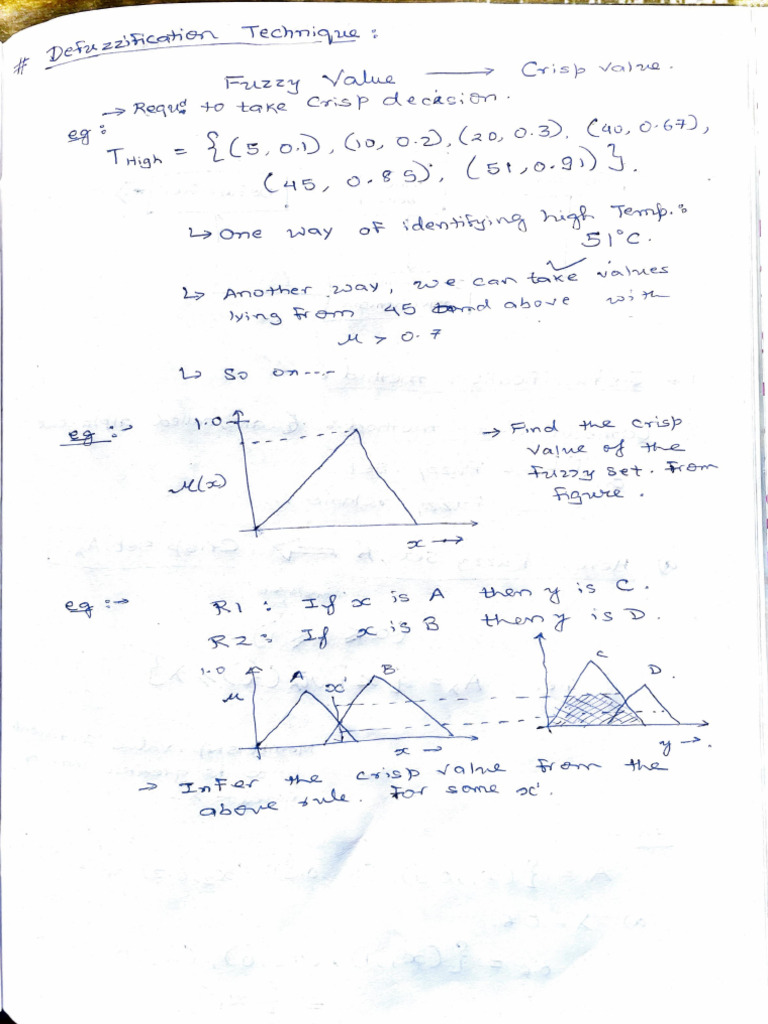 # Defuzzification Technique :
Fuzzy Value ⟶ Crisp value.
→ Requd to take crisp decision.
eg :
T High = {(5, 0.1), (10, 0.2), (20, 0.3), (40, 0.67),
(45, 0.85), (51, 0.91)}.
↳ One way of identifying high Temp. :
51°C.
↳ Another way, we can take values
lying from 45 and above with
μ > 0.7
↳ So on....
eg :→
1.0
μ(x)
x →
→ Find the crisp
value of the
fuzzy set. From
figure.
eg :→
R1 : If x is A then y is C.
R2 : If x is B then y is D.
1.0
μ
A
x'
B
x →
C
D.
y →.
→ Infer the crisp value from the
above rule. For some x'.